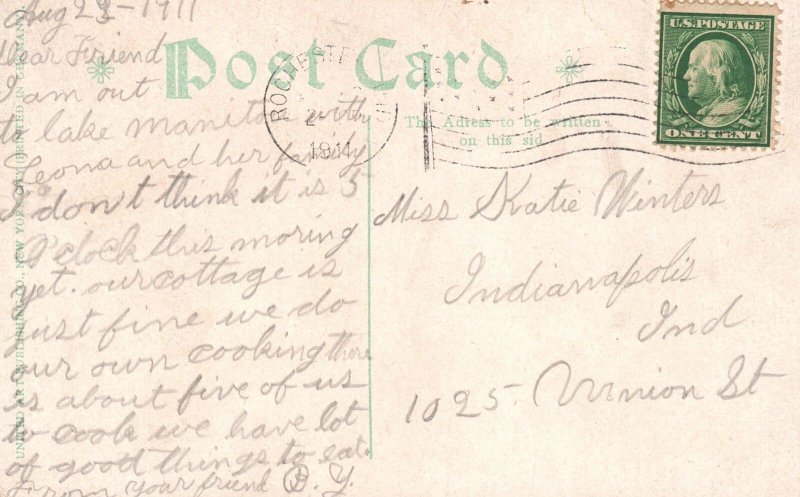 Aug 23-1911
Dear Firiend
I am out
to lake Manitou with
Leona and her family
I don't think it is 5
O'clock this moring
yet. our cottage is
just fine we do
our own cooking there
is about five of us
to cook we have lot
of good things to eat.
From your friend B. Y.
UNITED ART PUBLISHING CO. NEW YORK CITY (PRINTED IN GERMANY)
Post Card
ROCHESTER
IND
1911
U.S. POSTAGE
ONE CENT
The Adress to be written
on this sid
Miss Katie Winters
Indianapolis
Ind
1025 Union St